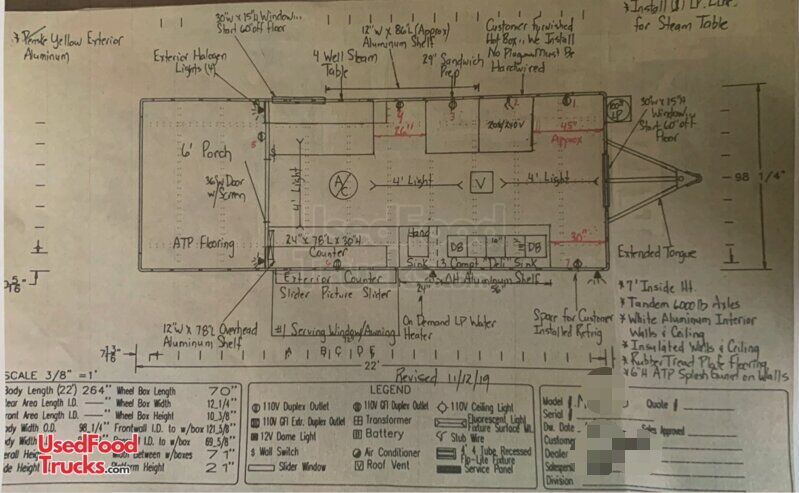 * Install (1) LP Line
for Steam Table
* Yellow Exterior
Aluminum
30"W x 15"H Window...
Start 60" off floor
12"W x 86"L (Approx)
Aluminum Shelf
Customer Furnished
Hot Box... We Install
No Plug... Must Be
Hardwired
Exterior Halogen
Lights (4)
4 Well Steam
Table
29" Sandwich
Prep
30"W x 15"H
Window...
Start 60" off
Floor
100#
LP
4
3
2
1
26"
45"
Approx
6' Porch
5
$
36"W Door
w/ Screen
4' Light
A/C
4' Light
V
4' Light
98 1/4"
ATP Flooring
24" x 78"L x 30"H
Counter
Hand
DB
10"
DB
30"
Extended Tongue
Sink
3 Compt. Deli Sink
6
7
Exterior Counter
Slider Picture Slider
24"
Aluminum Shelf
56"
12"W x 78"L Overhead
Aluminum Shelf
#1 Serving Window/Awning
On Demand LP Water
Heater
Space for Customer
Installed Refrig
* 7' Inside Ht.
* Tandem 6000 lb Axles
* White Aluminum Interior
Walls & Ceiling
* Insulated Walls & Ceiling
* Rubber Tread Plate Flooring
* 6"H ATP Splashguard on Walls
22'
Revised 11/12/19
SCALE 3/8" = 1'
Body Length (22') 264" Wheel Box Length 70"
Rear Area Length I.D. Wheel Box Width 12 1/4"
Front Area Length I.D. Wheel Box Height 10 3/8"
Body Width O.D. 98 1/4" Frontwall I.D. to w/box 121 5/8"
Body Width I.D. I.D. to w/box 69 5/8"
Overall Height between w/boxes 71"
Side Height Platform Height 21"
LEGEND
110V Duplex Outlet
110V GFI Duplex Outlet
110V Ceiling Light
110V GFI Extr. Duplex Outlet
Transformer
Fluorescent Light
Fixture Surface Mt.
12V Dome Light
Battery
Stub Wire
$ Wall Switch
Air Conditioner
4' 4 Tube Recessed
Flo-Lite Fixture
Slider Window
V Roof Vent
Service Panel
Model
Quote #
Serial
Dw. Date
Sales Approved
Customer
Dealer
Salesperson
Division
UsedFood
Trucks.com